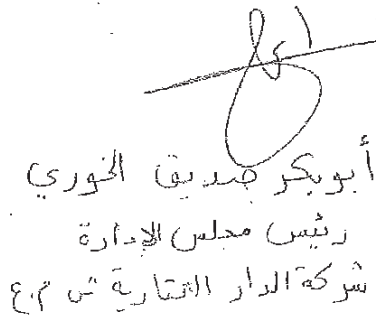 أبوبكر صديق الخوري
رئيس مجلس الإدارة
شركة الدار العقارية ش م.ع